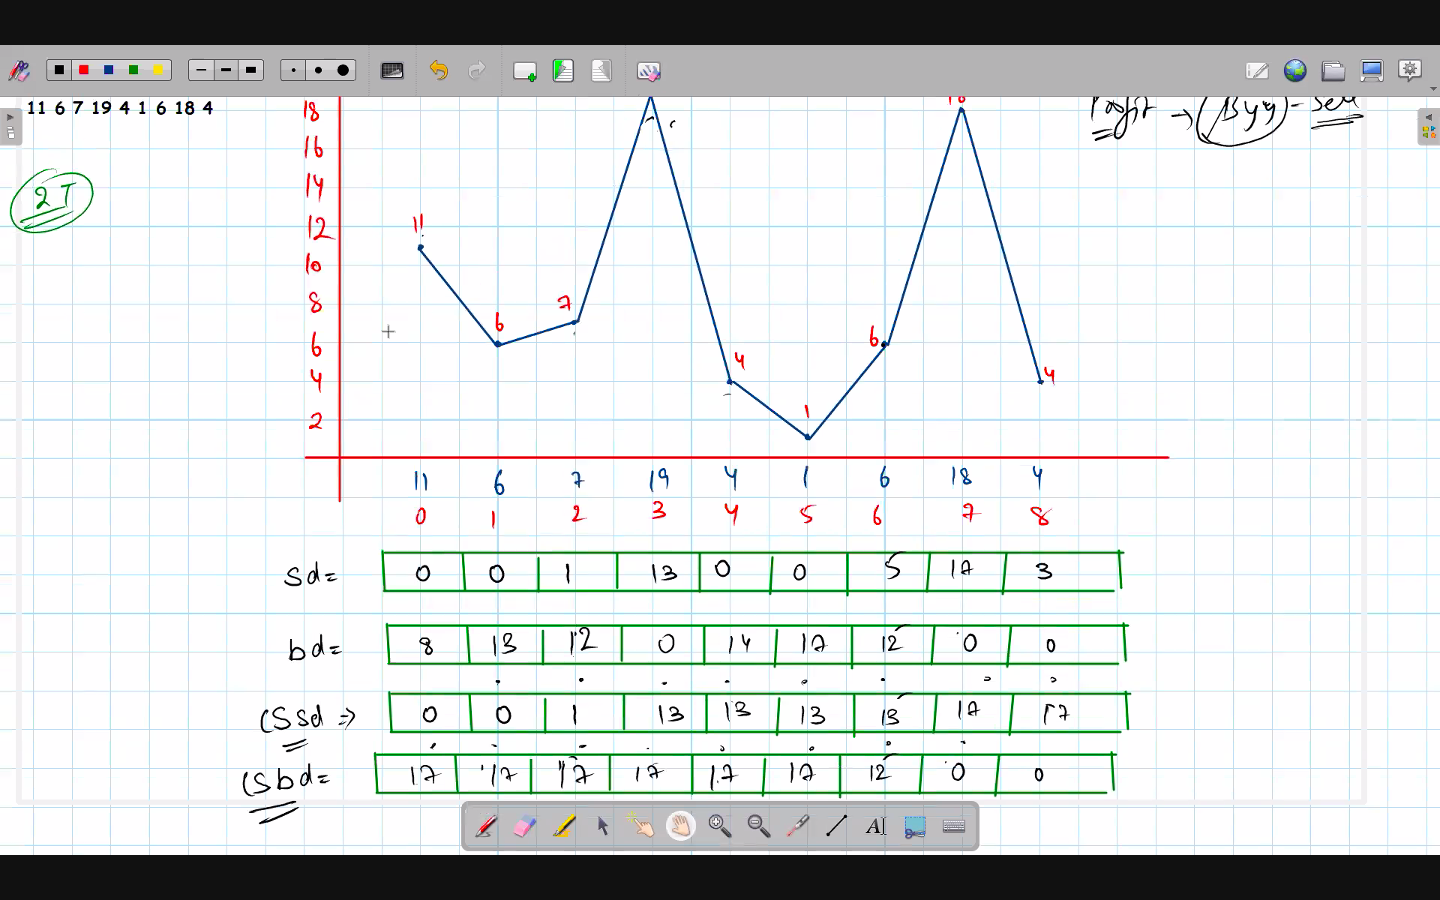 11 6 7 19 4 1 6 18 4
2T
Profit → (Buy) - Sell
18
16
14
12
10
8
6
4
2
11
6
7
4
1
6
4
11 6 7 19 4 1 6 18 4
0 1 2 3 4 5 6 7 8
Sd= 0 0 1 13 0 0 5 17 3
bd= 8 13 12 0 14 17 12 0 0
(SSd ⇒ 0 0 1 13 13 13 13 17 17
(Sbd= 17 17 17 17 17 17 12 0 0